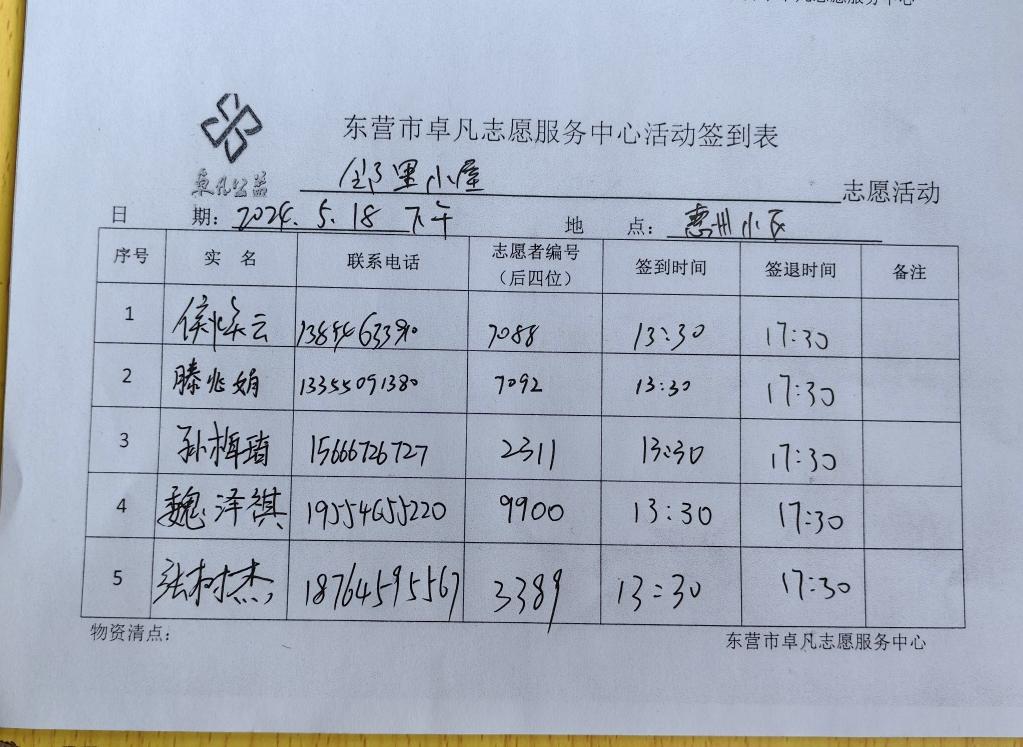 东营市卓凡志愿服务中心活动签到表
卓凡公益
邻里小屋 志愿活动
日 期: 2024.5.18 下午 地 点: 惠州小区
序号 实 名 联系电话 志愿者编号（后四位） 签到时间 签退时间 备注
1 云 13854633910 7088 13:30 17:30
2 滕兆娟 13355091380 7092 13:30 17:30
3 孙梅琦 15666726727 2311 13:30 17:30
4 魏泽祺 19554655220 9900 13:30 17:30
5 张树杰 18764595567 3389 13:30 17:30
物资清点: 东营市卓凡志愿服务中心